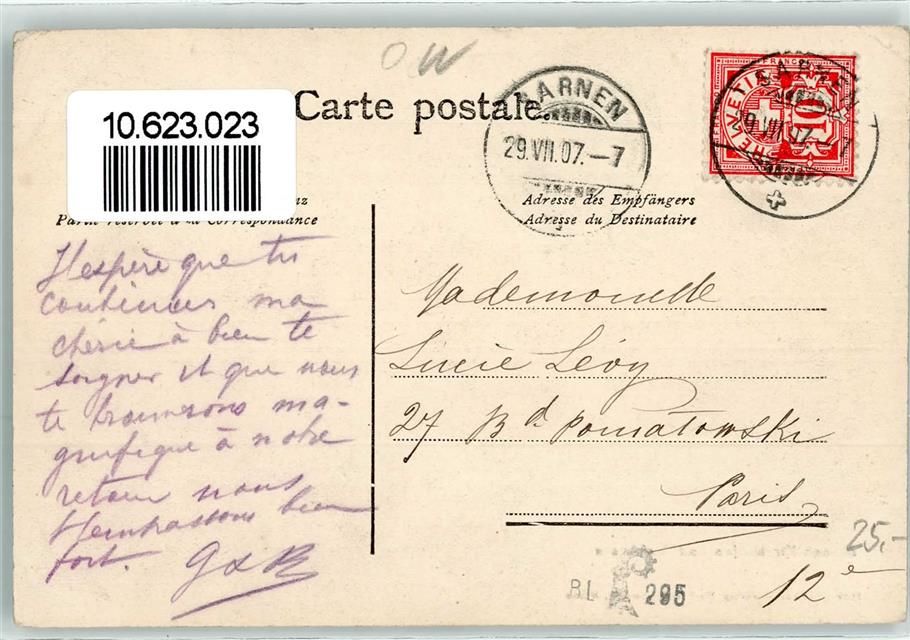 OW
10.623.023
Carte postale.
SARNEN
29.VII.07.–7
HELVETIA
FRANCO
10
SARNEN
29.VII.07.–7
Partie réservée à la Correspondance
Adresse des Empfängers
Adresse du Destinataire
J'espère que tu
continues ma
chérie à bien te
soigner et que nous
te trouverons ma-
gnifique à notre
retour nous
t'embrassons bien
fort. G & R
Mademoiselle
Lucie Lévy
27 Bd Poniatowski
Paris
12e
25,-
BL 295